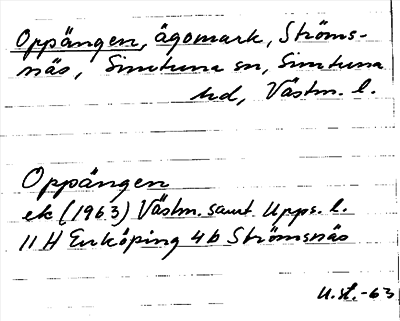 Oppängen, ägomark, Ströms-
näs, Simtuna sn, Simtuna
hd, Västm. l.
Oppängen
ek (1963) Västm. samt Upps. l.
11 H Enköping 4b Strömsnäs
U.st.-63